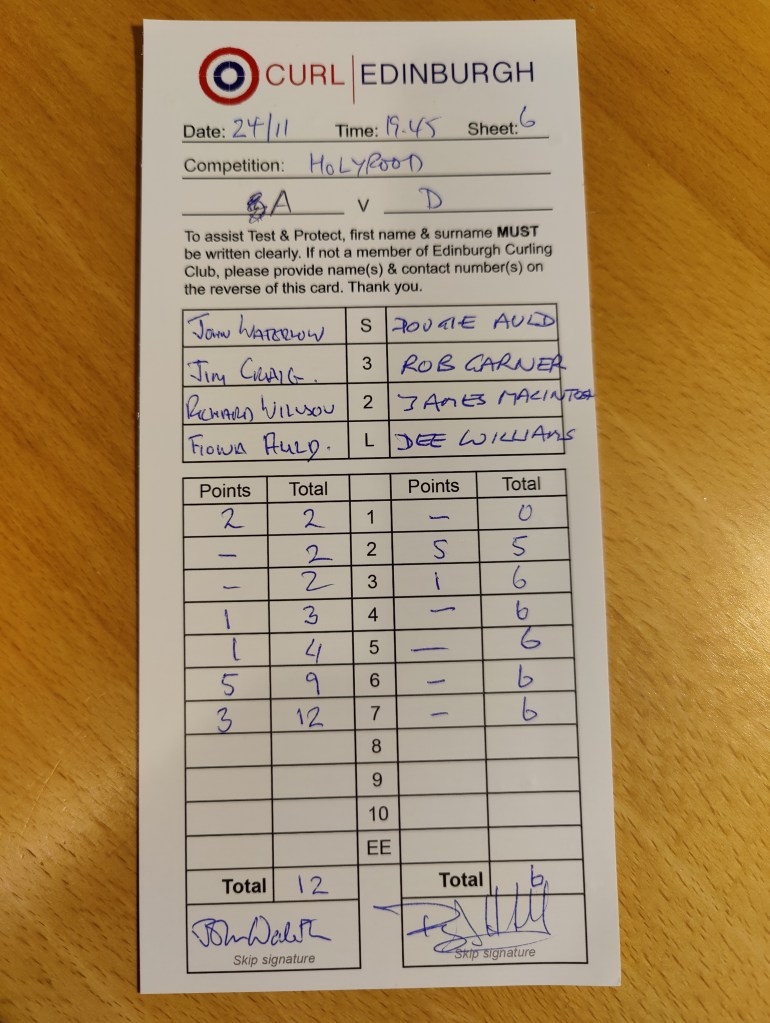 CURL EDINBURGH
Date: 24/11 Time: 19.45 Sheet: 6
Competition: HOLYROOD
A v D
To assist Test & Protect, first name & surname MUST
be written clearly. If not a member of Edinburgh Curling
Club, please provide name(s) & contact number(s) on
the reverse of this card. Thank you.
JOHN WATERLOW S DOUGIE AULD
JIM CRAIG. 3 ROB GARNER
RICHARD WILLSON 2 JAMES MACINTOSH
FIONA AULD. L DEE WILLIAMS
Points Total Points Total
2 2 1 – 0
– 2 2 5 5
– 2 3 1 6
1 3 4 – 6
1 4 5 – 6
5 9 6 – 6
3 12 7 – 6
8
9
10
EE
Total 12 Total 6
Skip signature Skip signature